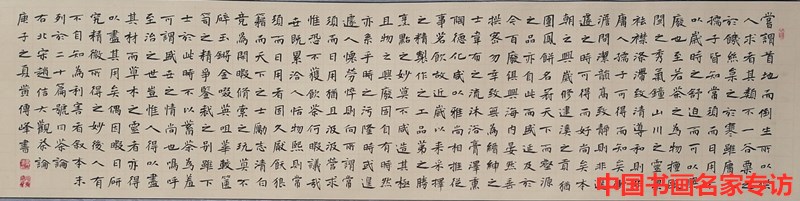 嘗謂首地而倒生所以供
人求者其類不一谷粟之
於饑絲枲之於寒雖庸人
孺子皆知常須而日用不
以歲時之舒迫而可以興
廢也至若茶之為物擅甌
閩之秀氣鍾山川之靈稟
祛襟滌滯致清導和則非
庸人孺子可得而知矣沖
澹簡潔韻高致靜則非遑
遽之時可得而好尚矣本
朝之興歲修建溪之貢
團鳳餅名冠天下而壑源
今百廢俱興海內晏然垂
拱密勿幸致無為
士韋布之流沐浴膏澤薰
德化咸以雅尚相推從
事茗飲故近歲以來采擇
之精製作之工品第之勝
烹點之妙莫不咸造其極
亦系乎時之污隆時或遑
遽人懷勞悴則向所謂常
須而日用猶且汲汲營求
惟恐不獲飲茶何暇議哉
世既累洽人恬物熙則常
須而日用者固久厭飫狼
籍而天下之士勵志清白
競為閒暇修索之玩莫不
碎玉鏘金啜英咀華較篋
笥之精爭鑒裁之別雖下
士於此時不以蓄茶為羞
可謂盛世之情尚也嗚呼
至治之世豈惟人得以盡
其材而草木之靈者亦得
以盡其用矣偶因暇日研
究精微所得之妙後人有
列於二十篇號曰茶論
右北宋趙佶大觀茶論
庚子之夏 傳峰書
中国书画名家专访